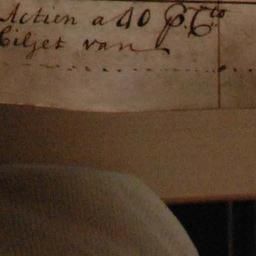 Actien a 40 P. Cto
Biljet van